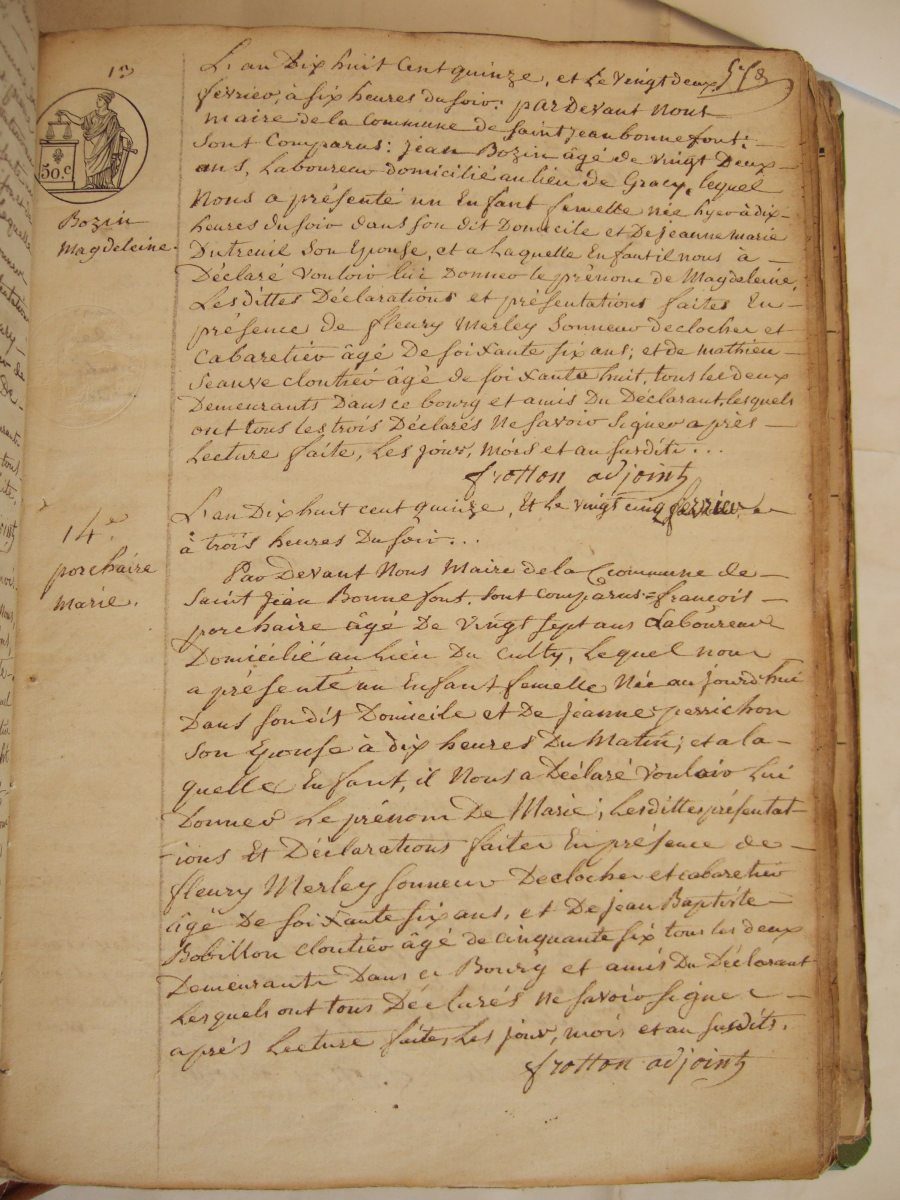 13
558
50.c
Bozin
Magdeleine.
L'an Dix huit Cent quinze, et Le vingt deux
fevrier, à six heures du soir: par Devant Nous
maire de la Commune de Saint jean bonnefont:
Sont Comparus: jean Bozin âgé de vingt Deux
ans, Laboureur domicilié au lieu de Gracy, lequel
Nous a présenté un Enfant femelle née hyer à dix
heures du soir dans son dit Domicile et De jeanne marie
Dutreuil Son Epouse, et a Laquelle Enfant il nous à
Déclaré vouloir lui Donner le prénom de Magdeleine,
Les dittes Déclarations et présentations faites En
présence de fleury Merley Sonneur de clocher et
Cabaretier âgé De soixante six ans; et de mathieu
Seauve cloutier âgé de soixante huit, tous les deux
Demeurants Dans ce bourg et amis Du Déclarant, lesquels
ont tous les trois Déclarés Ne savoir Signer après
Lecture faite, Les jour, mois et an susdits...
frotton adjoint
14e
porchaire
marie.
L'an Dix huit cent quinze, Et Le vingt cinq fevrier
à trois heures Du soir...
Par Devant Nous Maire de la Commune de
Saint jean Bonnefont. sont comparus = francois
porchaire âgé De vingt sept ans Laboureur
Domicilié au Lieu Du Culty, Lequel nous
a présenté un Enfant femelle Née aujourdhui
Dans son dit Domicile et De jeanne perrichon
Son Epouse à dix heures Du Matin; et a la-
quelle Enfant, il Nous a Déclaré vouloir Lui
Donner Le prénom De Marie; Lesdittes présentat-
-ions Et Déclarations faites En présence de
fleury Merley sonneur De clocher et cabaretier
âgé De soixante six ans, et De jean Baptiste
Bobillon cloutier âgé de cinquante six tous les deux
Demeurants Dans ce Bourg et amis Du Déclarant
Lesquels ont tous Déclarés Ne savoir signer
après Lecture faite, Les jour, mois et an susdits.
frotton adjoint